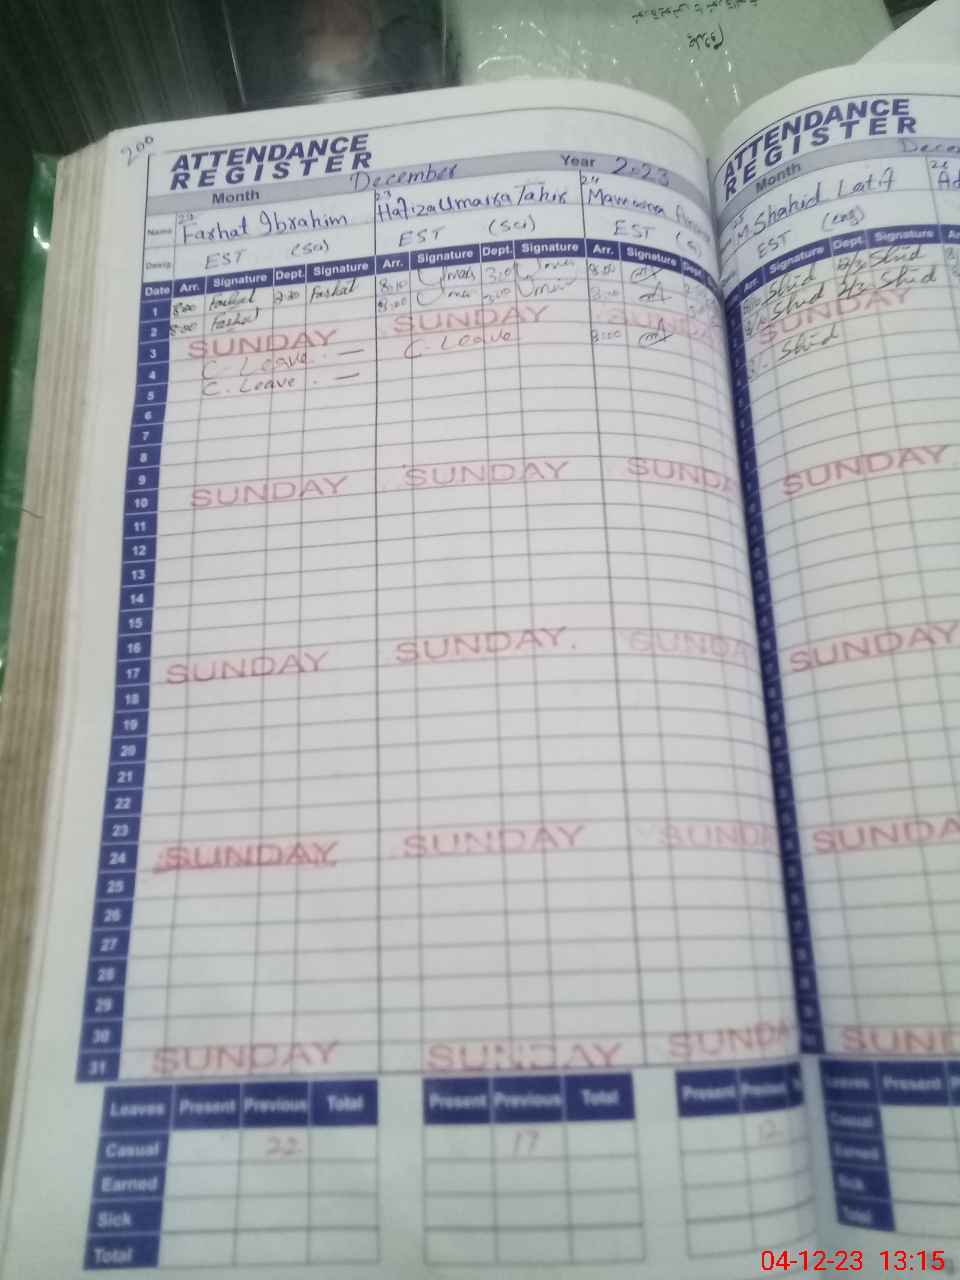 200
ATTENDANCE
REGISTER
Month December Year 2023
Name Farhat Ibrahim 23 Hafiza Umaira Tahir 24
Desig. EST (Sci) EST (Sci) EST
Date Arr. Signature Dept. Signature Arr. Signature Dept. Signature Arr. Signature Dept.
1 8:00 Farhat 2:30 Farhat 8:10 3:10 8:00
2 8:00 Farhat 8:00
3 SUNDAY SUNDAY SUNDAY
4 C. Leave. — C. Leave 8:00
5 C. Leave. —
6
7
8
9
10 SUNDAY SUNDAY SUNDAY
11
12
13
14
15
16
17 SUNDAY SUNDAY. SUNDAY
18
19
20
21
22
23
24 SUNDAY SUNDAY SUNDAY
25
26
27
28
29
30
31 SUNDAY SUNDAY SUNDAY
Leaves Present Previous Total Present Previous Total Present Previous
Casual 22 17 12
Earned
Sick
Total
ATTENDANCE
REGISTER
Month
M. Shahid Latif
EST (eng)
Arr. Signature Dept. Signature
Shid Shid
Shid Shid
SUNDAY
Shid
SUNDAY
SUNDAY
SUNDA
SUND
Leaves Present
Casual
Earned
Sick
Total
04-12-23 13:15